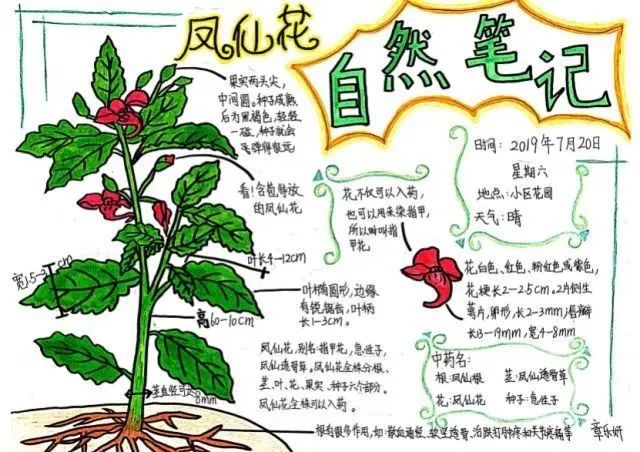 凤仙花
自然笔记
果实两头尖,
中间圆。种子成熟
后为黑褐色,轻轻
一碰,种子就会
弹得很远
日间:2019年7月20日
星期六
地点:小区花园
天气:晴
看!含苞待放
的凤仙花
花不仅可以入药,
也可以用来染指甲,
所以叫指
甲花
叶长4-12cm
宽1.5-3cm
花白色、红色、粉红色或紫色,
花梗长2-2.5cm。2片侧生
萼片,卵形,长2-3mm,唇瓣
长13-19mm,宽4-8mm
叶椭圆形,边缘
有锐锯齿,叶柄
长1-3cm。
高60-10cm
凤仙花,别名:指甲花,急性子,
凤仙透骨草。凤仙花全株分根、
茎、叶、花、果实、种子六个部分。
凤仙花全株可以入药。
中药名:
根:凤仙根 茎:凤仙透骨草
花:凤仙花 种子:急性子
茎直径可达
8mm
根有很多作用,如:散血通经、软坚透骨、治跌打肿疼和关节疼痛等
章乐妍